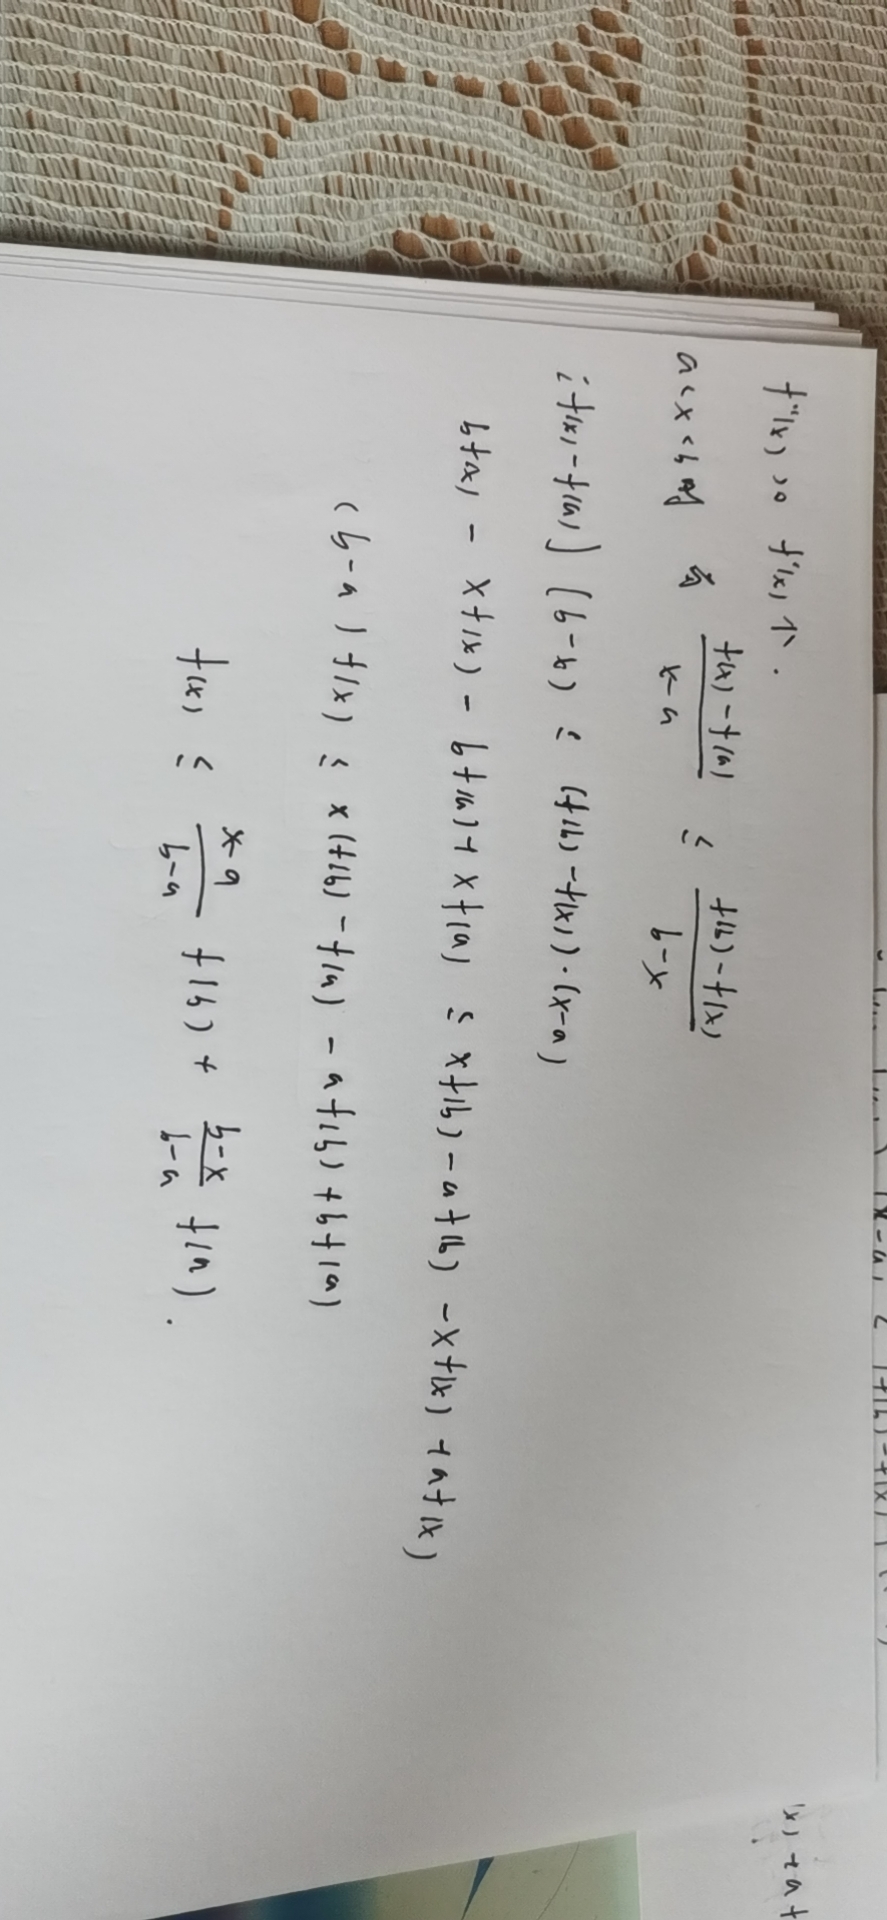 f''(x) >0 f'(x) ↑.
a<x<b 时 有 \frac{f(x)-f(a)}{x-a} ≤ \frac{f(b)-f(x)}{b-x}
(f(x)-f(a)) (b-x) ≤ (f(b)-f(x))·(x-a)
bf(x) - xf(x) - bf(a) + xf(a) ≤ xf(b) - af(b) - xf(x) + af(x)
(b-a) f(x) ≤ x(f(b)-f(a) - af(b) + bf(a)
f(x) ≤ \frac{x-a}{b-a} f(b) + \frac{b-x}{b-a} f(a).